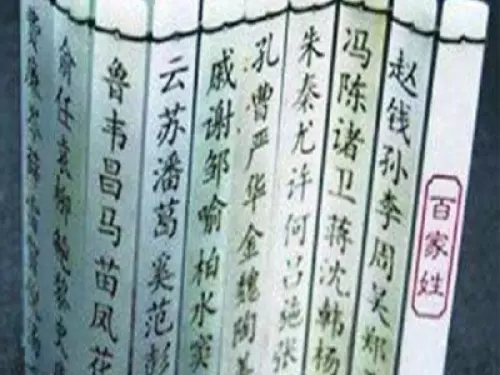 百家姓
赵钱孙李周吴郑
冯陈诸卫蒋沈韩杨
朱秦尤许何吕施张
孔曹严华金魏陶姜
戚谢邹喻柏水窦
云苏潘葛奚范彭
鲁韦昌马苗凤花
俞任袁柳
费廉岑薛